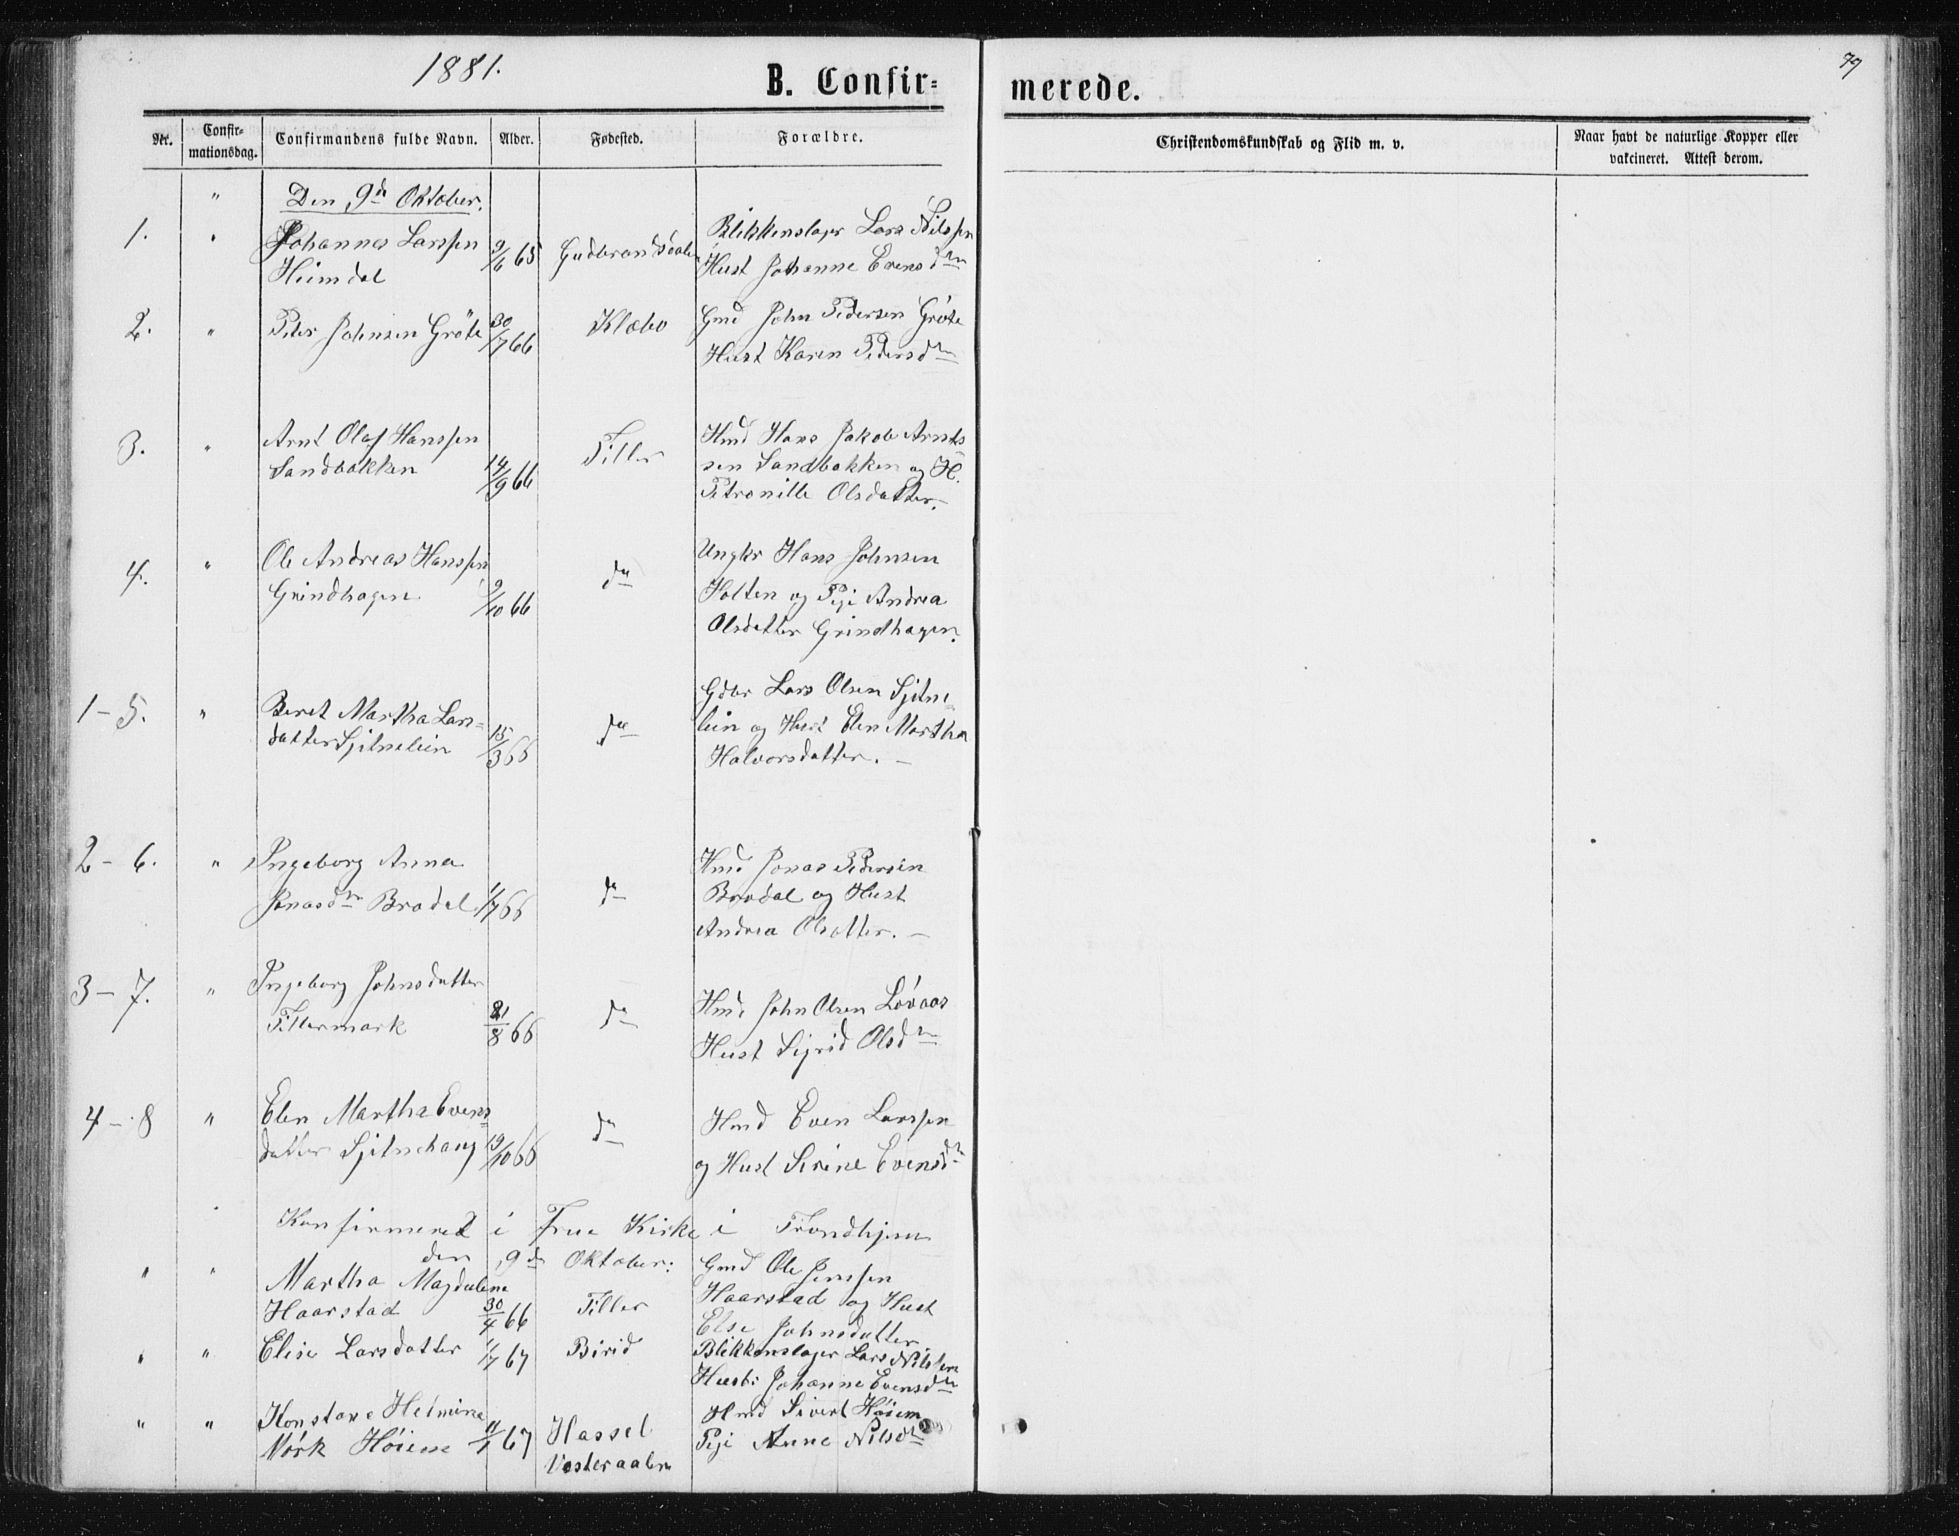 1881.
79
B. Confir=
merede.
Nr.
Confir-
mationsdag.
Confirmandens fulde Navn.
Alder.
Fødested.
Forældre.
Christendomskundskab og Flid m. v.
Naar havt de naturlige Kopper eller
vakcineret. Attest derom.
" Den 9de Oktober.
1. " Johannes Larssen 9/6 65 Gudbrandsdalen Blikkenslager Lars Nilssen
Heimdal Hust Johanne Evensdtr
2. " Peter Johnsen Gröte 30/7 66 Klæbo Gmd John Pedersen Gröte
Hust Karen Pedersdtr
3. " Arnt Olaf Hanssen Tiller Hmd Hans Jakob Arnts
Sandbakken 14/9 66 sen Sandbakken og H.
Petronille Olsdatter.
4. " Ole Andreas Hanssen do Ungkr Hans Johnsen
Grindhagen 9/10 66 Holten og Pige Andrea
Olsdatter Grindhagen.
1-5. " Beret Martha Lars= do Gdbr Lars Olsen Sjetne
datter Sjetnelein 15/3 66 lein og Hust Elen Martha
Halvorsdatter. -
2-6. " Ingeborg Anna do Hmd Jonas Pedersen
Jonasdtr Brodal 1/7 66 Brodal og Hust
Andrea Olsatter. -
3-7. " Ingeborg Johnsdatter do Hmd John Olsen Lövaas
Tillermark 21/8 66 Hust Sigrid Olsdtr
4-8 " Elen Martha Evens do Hmd Even Larssen
datter Sjetnehaug 19/10 66 og Hust Serine Evensdtr
Konfirmered i Frue Kirke i Trondhjem
den 9de Oktober:
" " Martha Magdalene Gmd Ole Jenssen
Haarstad 30/4 66 Tiller Haarstad og Hust
Else Johnsdatter
" " Elise Larsdatter 1/7 67 Birid Blikkenslager Lars Nilssen
Hust: Johanne Evensdtr
" " Konstane Helmine Hmd Sivert Höiem
Mörk Höiem 11/1 67 Hassel Pige Anne Nilsdtr
Vesteraalen